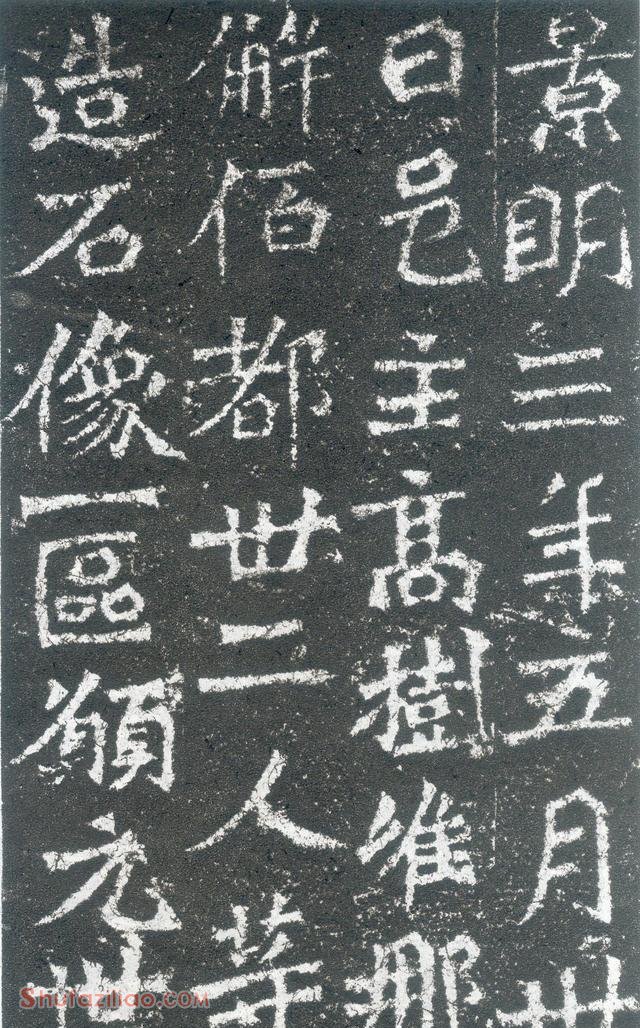 景明三年五月卅
日邑主高樹唯那
解佰都卅二人等
造石像一區願元世
Shufaziliao.com